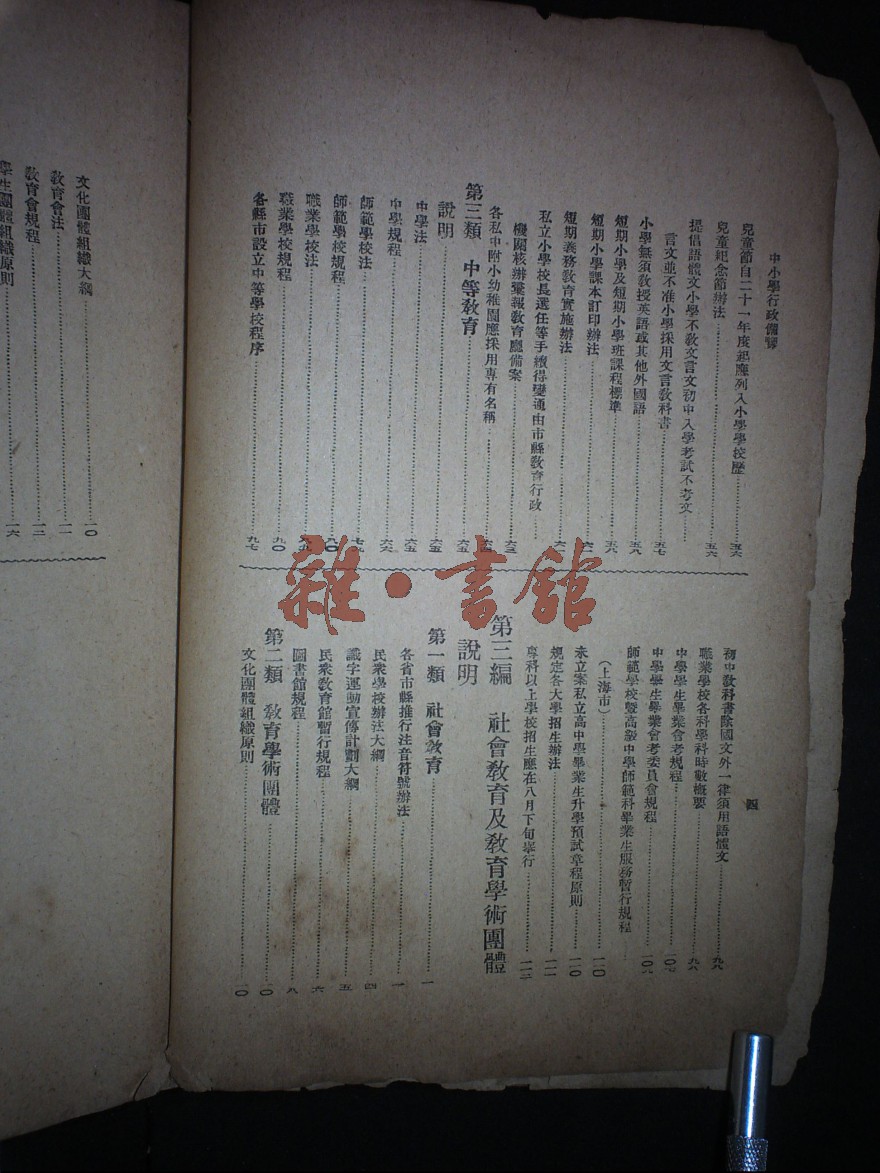 中小學行政備覽
四
兒童節自二十一年度起應列入小學學校歷……五六
兒童紀念節辦法……五六
提倡語體文小學不敎文言文初中入學考試不考文
言文並不准小學採用文言敎科書……五七
小學無須敎授英語或其他外國語……五八
短期小學及短期小學班課程標準……五八
短期小學課本訂印辦法……六一
短期義務敎育實施辦法……六一
私立小學校長選任等手續得變通由市縣敎育行政
機關核辦彙報敎育廳備案……六三
各私中附小幼稚園應採用專有名稱……六四
第三類 中等敎育……六五
說明……六五
中學法……六五
中學規程……六六
師範學校法
師範學校規程……八〇
職業學校法
職業學校規程……九〇
各縣市設立中等學校程序……九七
初中敎科書除國文外一律須用語體文……九八
職業學校各科學科時數概要……九八
中學學生畢業會考規程……一〇七
中學學生畢業會考委員會規程……一〇八
師範學校暨高級中學師範科畢業生服務暫行規程
(上海市)……一一〇
未立案私立高中學畢業生升學預試章程原則……一一〇
規定各大學招生辦法……一一一
專科以上學校招生應在八月下旬舉行……一一二
第三編 社會敎育及敎育學術團體
說明
第一類 社會敎育……一
各省市縣推行注音符號辦法……一
民衆學校辦法大綱……四
識字運動宣傳計劃大綱……五
民衆敎育館暫行規程……六
圖書館規程……八
第二類 敎育學術團體……一〇
文化團體組織原則……一〇
文化團體組織大綱……一〇
敎育會法……一一
敎育會規程……一二
學生團體組織原則……一六
雜·書館